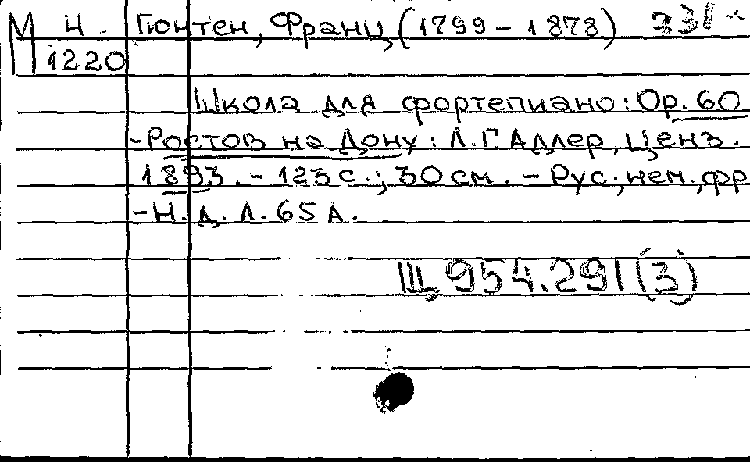 М Н. Гюнтен, Франц, (1799 - 1878) 331
1220
Школа для фортепиано: Ор. 60
- Ростов на Дону: Л. Г. Адлер, Ценз.
1893. - 123 с.; 30 см. - Рус., нем., фр
- Н. д. Л. 65 А.
Щ 954.291(3)